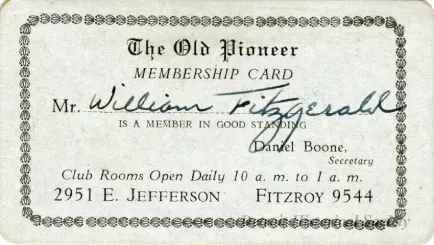 The Old Pioneer
MEMBERSHIP CARD
Mr. William Fitzgerald
IS A MEMBER IN GOOD STANDING
Daniel Boone,
Secretary
Club Rooms Open Daily 10 a. m. to 1 a m.
2951 E. JEFFERSON FITZROY 9544
Historical Society